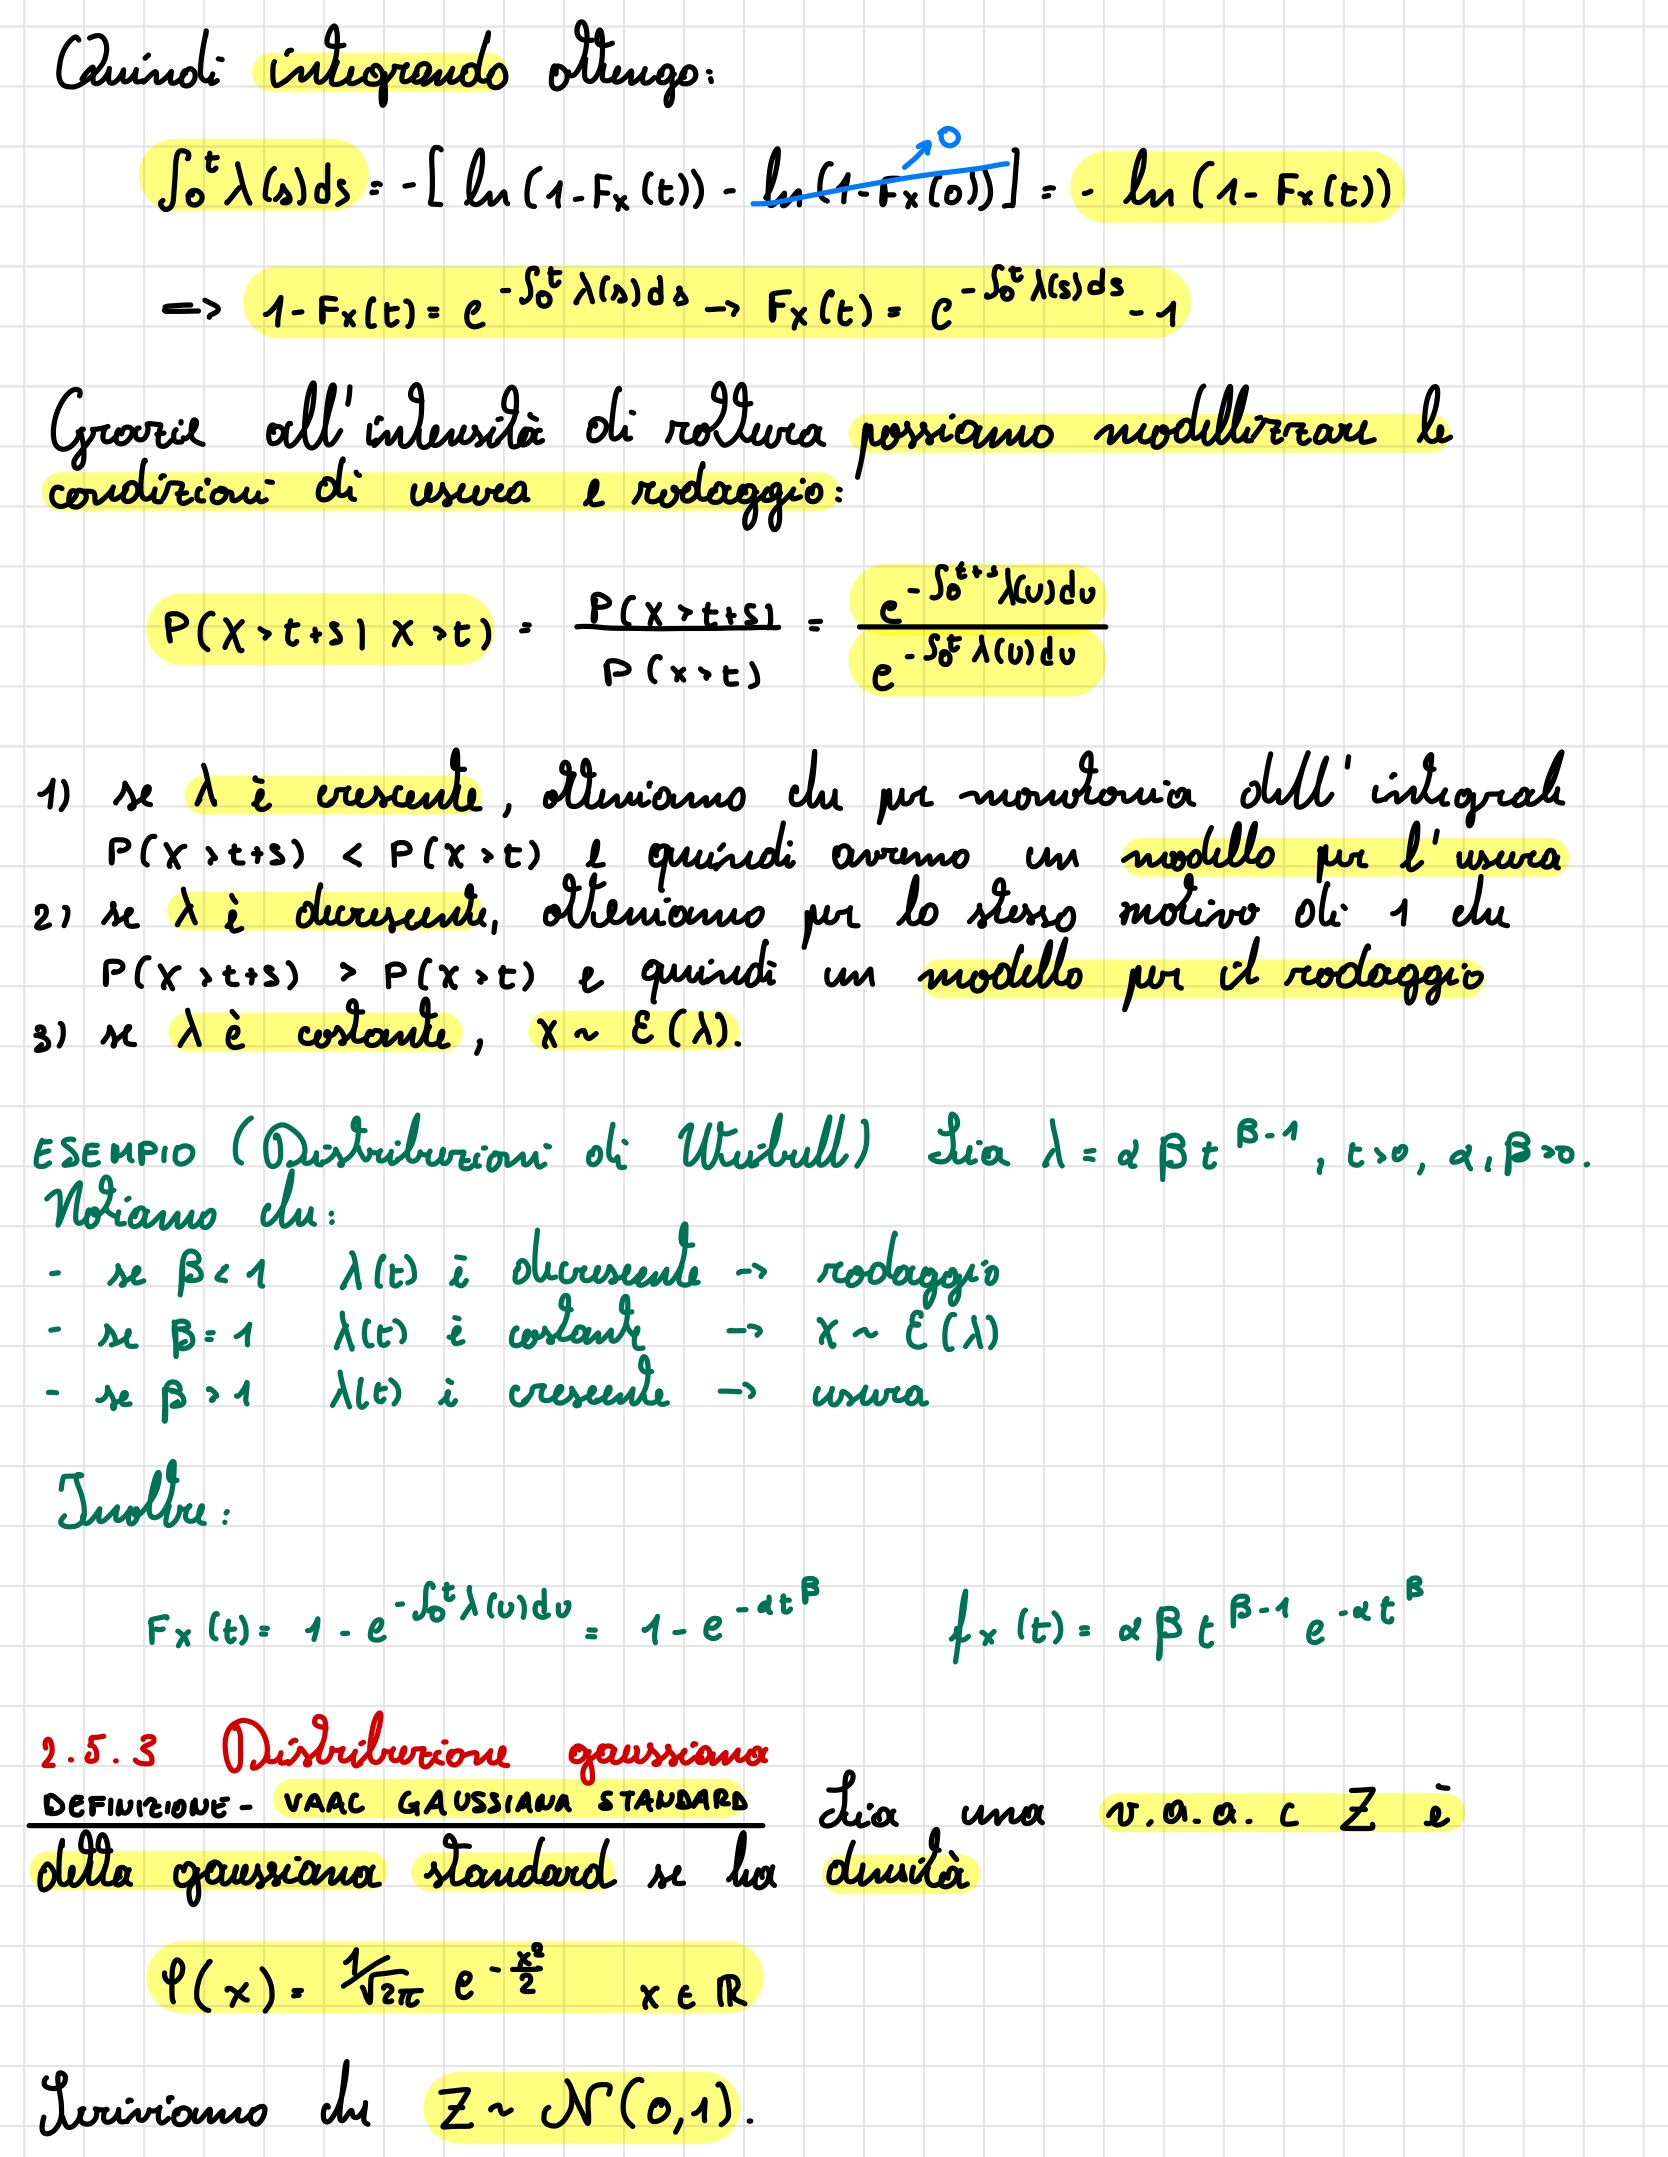 Quindi integrando ottengo:
∫₀ᵗ λ(s)ds = -[ ln (1-Fx(t)) - ln(1-Fx(0)) ] = - ln (1- Fx(t))
0
=> 1-Fx(t) = e^{-∫₀ᵗ λ(s)ds} -> Fx(t) = e^{-∫₀ᵗ λ(s)ds} - 1
Grazie all'intensità di rottura possiamo modellizzare le
condizioni di usura e rodaggio:
P(X>t+s | X>t) = P(X>t+s) / P(X>t) = e^{-∫₀^{t+s} λ(u)du} / e^{-∫₀ᵗ λ(u)du}
1) se λ è crescente, otteniamo che per monotonia dell'integrale
P(X>t+s) < P(X>t) e quindi avremo un modello per l'usura
2) se λ è decrescente, otteniamo per lo stesso motivo di 1 che
P(X>t+s) > P(X>t) e quindi un modello per il rodaggio
3) se λ è costante, X ~ E(λ).
ESEMPIO (Distribuzioni di Weibull) Sia λ = α β t^{β-1}, t>0, α, β>0.
Notiamo che:
- se β<1 λ(t) è decrescente -> rodaggio
- se β=1 λ(t) è costante -> X ~ E(λ)
- se β>1 λ(t) è crescente -> usura
Inoltre:
Fx(t) = 1 - e^{-∫₀ᵗ λ(u)du} = 1 - e^{-αt^β} fx(t) = α β t^{β-1} e^{-αt^β}
2.5.3 Distribuzione gaussiana
DEFINIZIONE - VAAC GAUSSIANA STANDARD Sia una v.a.a.c Z è
detta gaussiana standard se ha densità
φ(x) = 1/√2π e^{-x²/2} x ∈ ℝ
Scriviamo che Z ~ N(0,1).